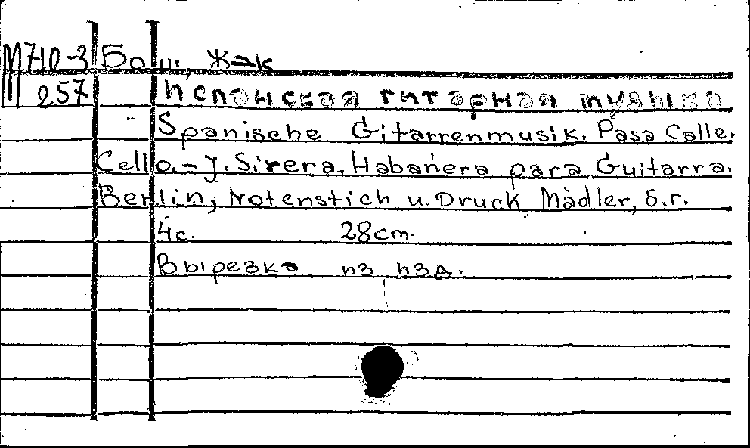 М710-3 Бош, Жак
257 Испанская гитарная музыка
Spanische Gitarrenmusik. Pasa Calle.
Cello.-J. Sirera. Habanera para Guitarra.
Berlin, Notenstich u. Druck Mädler, б.г.
4с. 28cm.
Вырезка из изд.